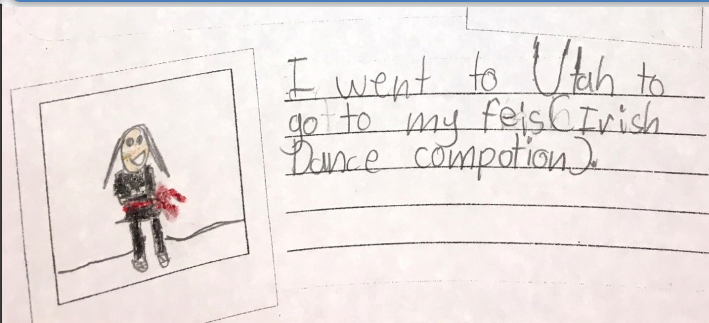 I went to Utah to
go to my feis (Irish
Dance compotion).